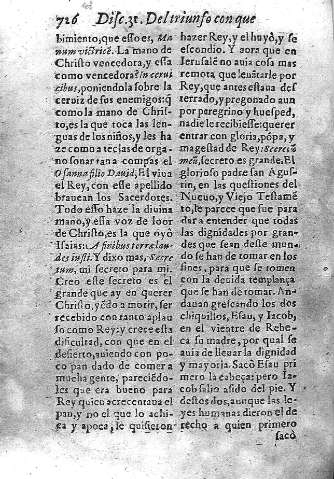 726 Disc. 31. Del triunfo con que
bimiento, que esso es, Ma
num victricē. La mano de
Christo vencedora, y essa
como vencedora? in cerui
cibus, poniendola sobre la
ceruiz de sus enemigos: q̃
como la mano de Chris-
to, es la que toca las len-
guas de los niños, y les ha
ze como a teclas de orga-
no sonar vna compas el
Osanna filio Dauid, El viua
el Rey, con esse apellido
brauean los Sacerdotes.
Todo esso haze la diuina
mano, y essa voz de loor
de Christo, es la que oyò
Isaias: A finibus terræ lau-
des
Y dixo mas, Secre
tum, mi secreto para mi.
Creo este secreto es el
grande que ay en querer
Christo, yẽdo a morir, ser
recebido con tanto aplau
so como Rey: y crece esta
dificultad, con que en el
desierto, auiendo con po-
co pan dado de comer a
mucha gente, pareciẽdo-
les que era bueno para
Rey quien acrecentaua el
pan, y no el que lo achi-
ca y apoca, le quisieron
hazer Rey, y el huyò, y se
escondio. Y aora que en
Ierusalẽ no auia cosa mas
remota que leuãtarle por
Rey, que antes estaua des
terrado, y pregonado aun
por peregrino y huesped,
nadie le recibiesse: querer
entrar con gloria, põpa, y
magestad de Rey: Secretũ
meũ, secreto es grande. El
glorioso padre san Agus-
tin, en las questiones del
Nueuo, y Viejo Testamẽ
to, le parece que fue para
dar a entender que todas
las dignidades por gran-
des que sean deste mun-
do se han de tomar en los
fines, para que se tomen
con la deuida templança
que se han de tomar. An-
dauan gresçando los dos
chiquillos, Esau, y Iacob,
en el vientre de Rebe-
ca su madre, por qual se
auia de lleuar la dignidad
y mayoria. Sacò Esau pri
mero la cabeça: pero Ia-
cob salio asido del pie. Y
destes dos, aunque las le-
yes humanas dieron el de
recho a quien primero
sacò